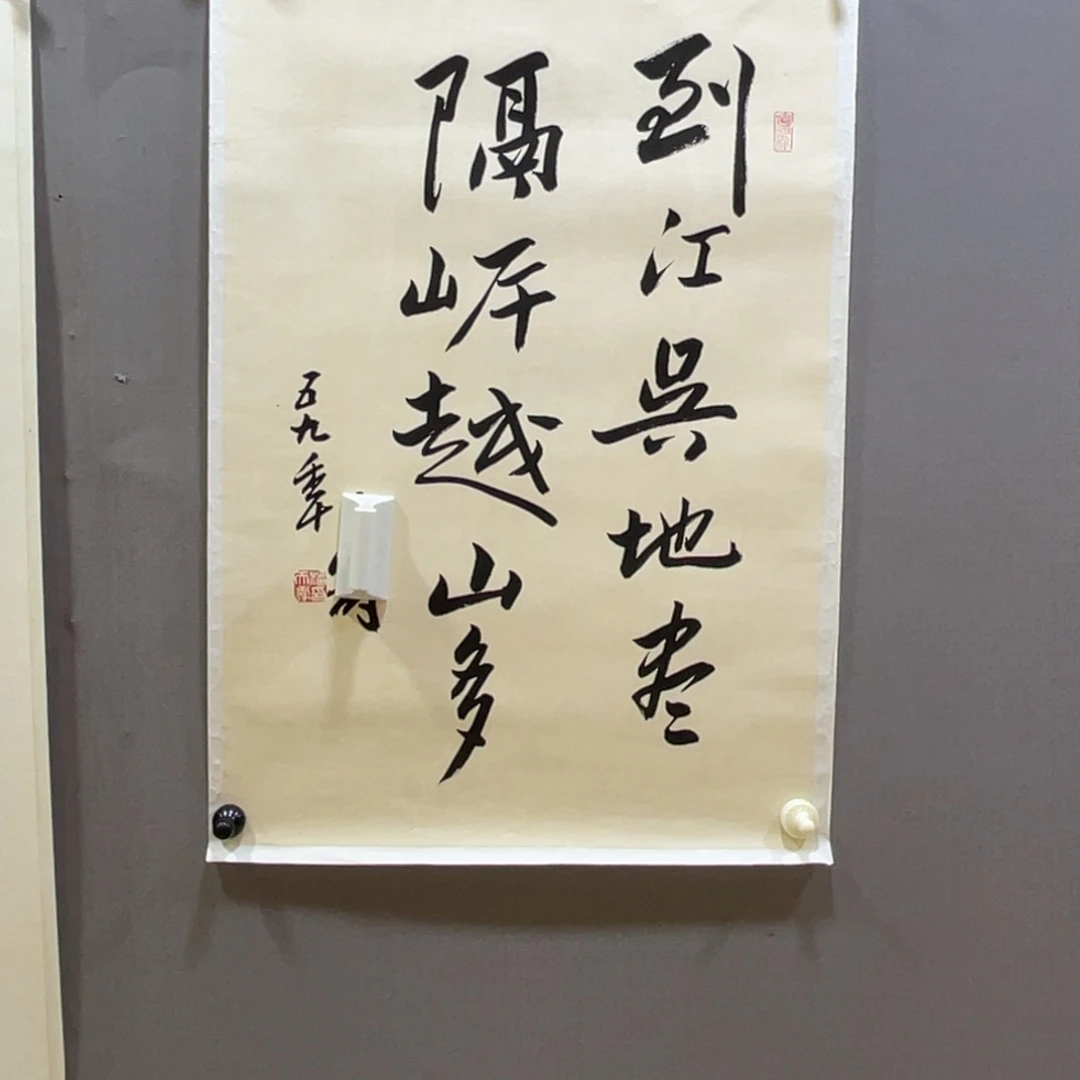 到江吳地尽
隔岸越山多
五九年